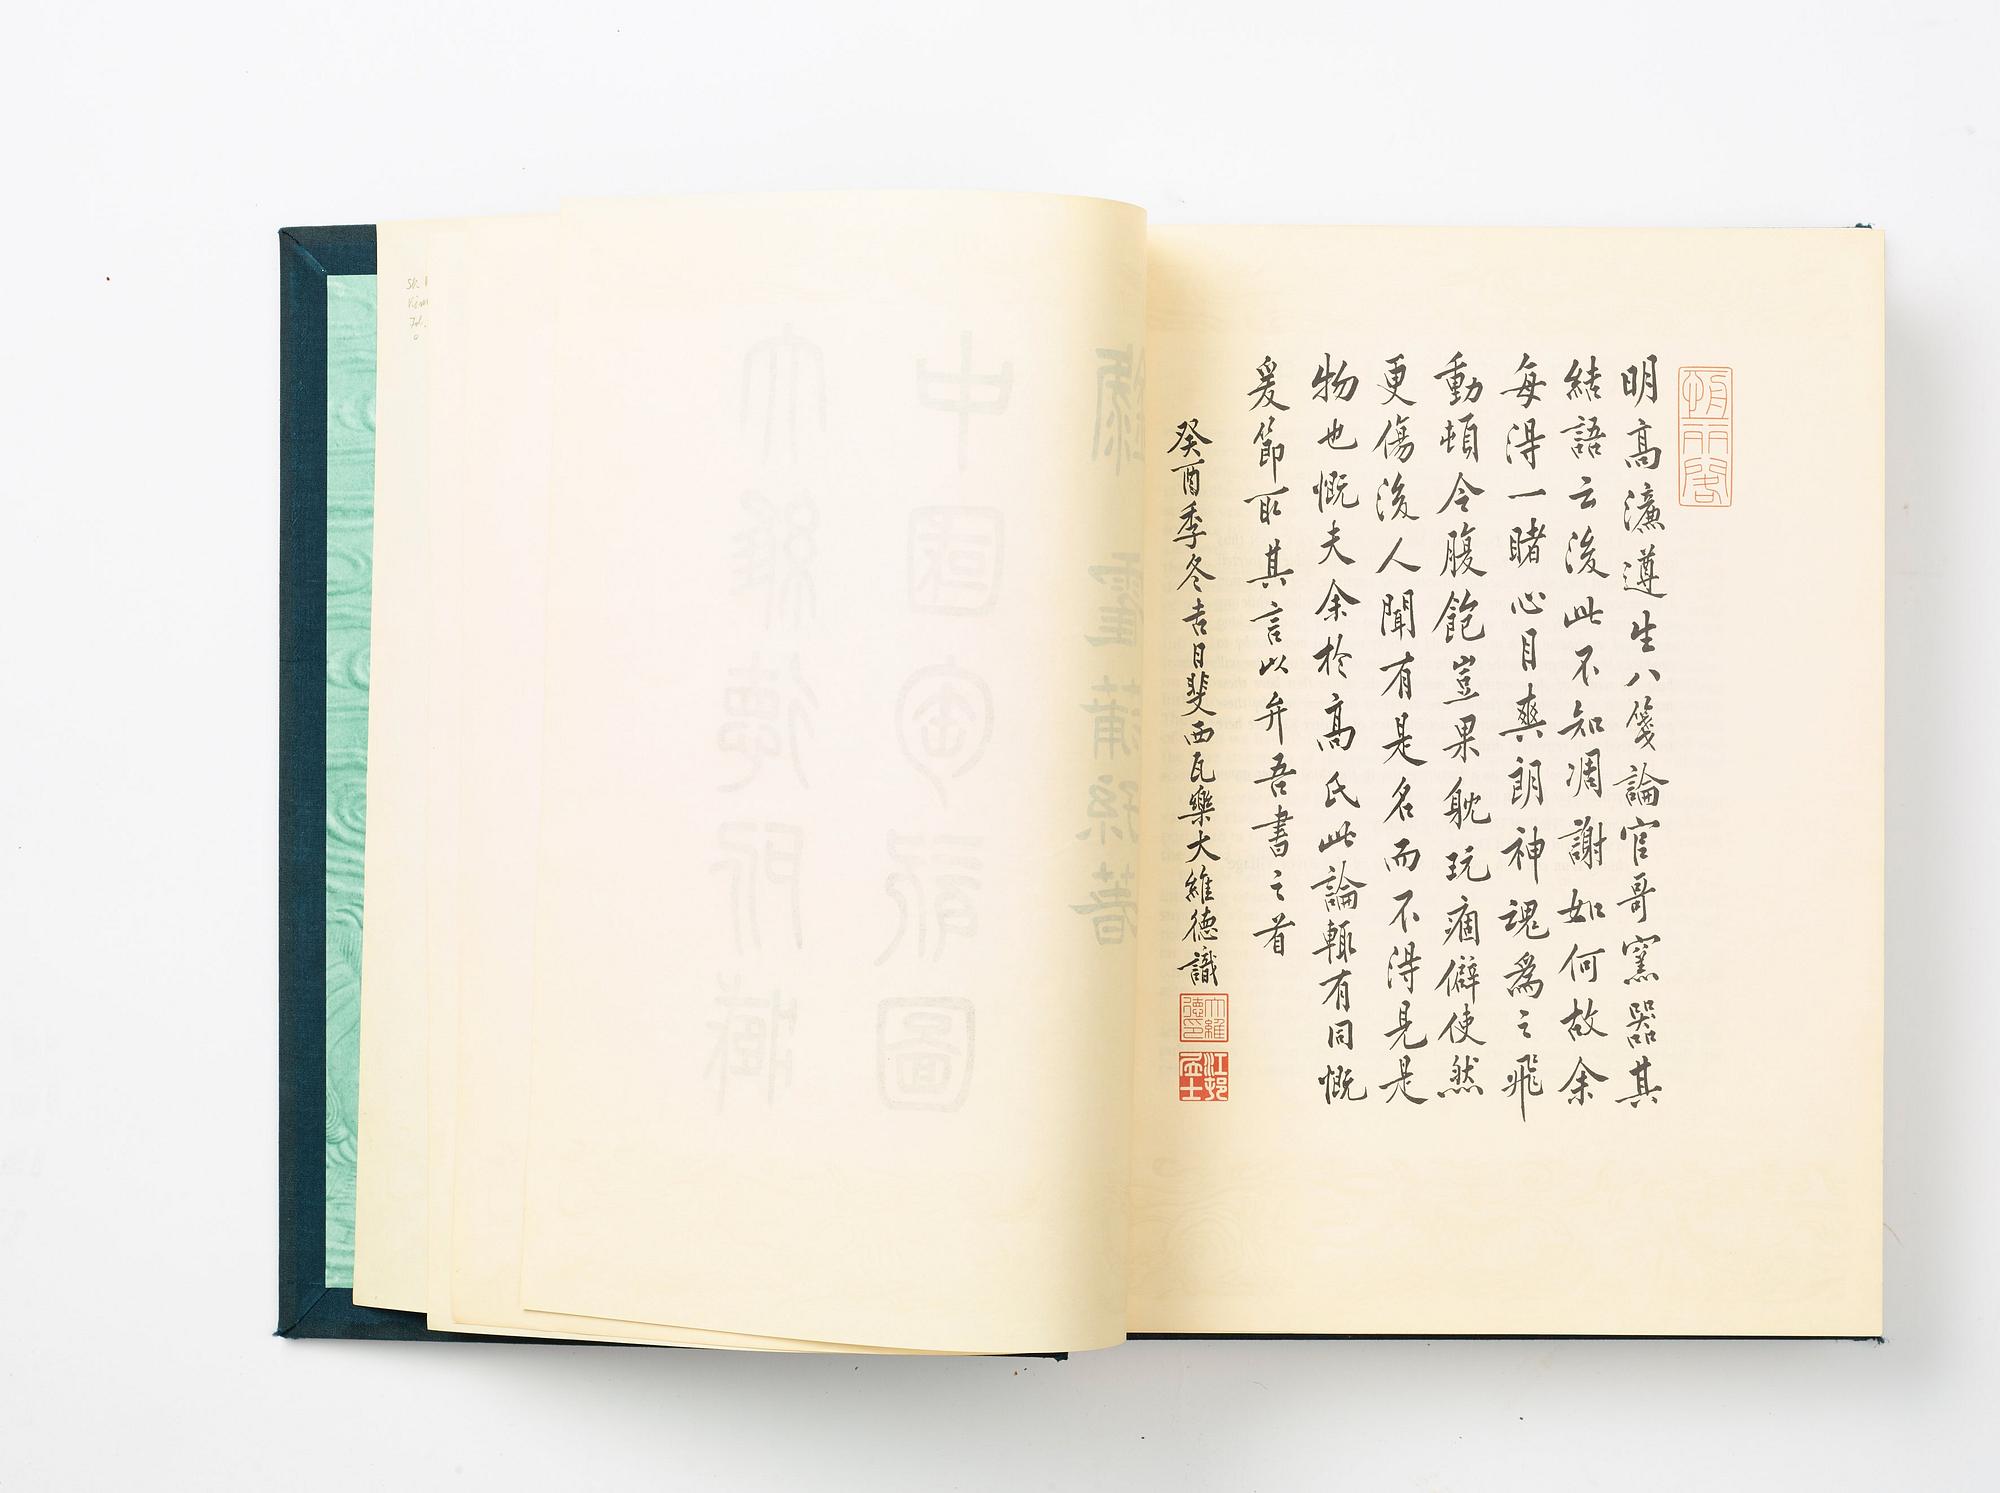 明高濂遵生八箋論官哥窯器其
結語云後此不知凋謝如何故余
每得一睹心目爽朗神魂為之飛
動頓令腹飽豈果躭玩痼僻使然
更傷後人聞有是名而不得見是
物也慨夫余於高氏此論輒有同慨
爰節取其言以弁吾書之首
癸酉季冬吉日斐西瓦樂大維德識
大維德印
江邨孟士
大維德所藏
中國陶瓷圖
錄 霍蒲孫著